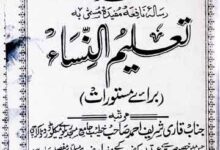 رسالہ نافعہ مفیدہ مسمّٰی بہ
تعلیم النساء
(برائے مستورات)
مرتبہ
جناب قاری شریف احمد صاحب